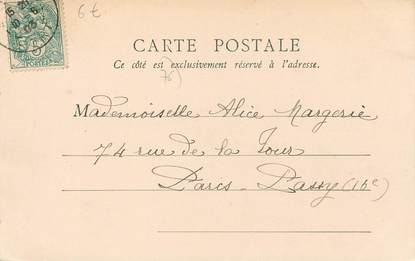 6 €
CARTE POSTALE
Ce côté est exclusivement réservé à l'adresse.
Mademoiselle Alice Margerie
74 rue de la Tour
Paris - Passy (16e)